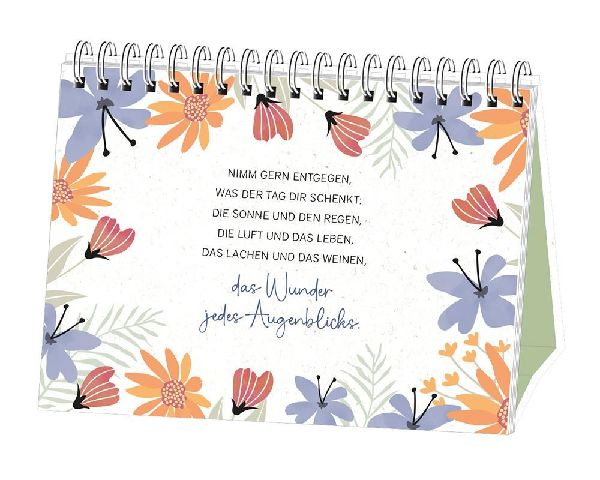 NIMM GERN ENTGEGEN,
WAS DER TAG DIR SCHENKT:
DIE SONNE UND DEN REGEN,
DIE LUFT UND DAS LEBEN,
DAS LACHEN UND DAS WEINEN,
das Wunder
jedes Augenblicks.